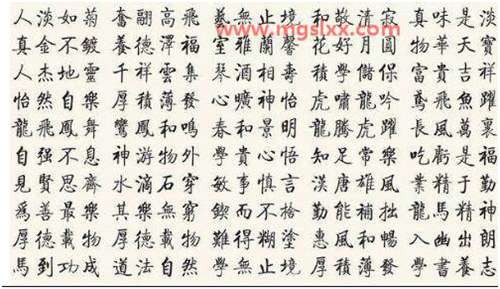 www.mgslxx.com
人淡如菊 奮翮高飛 藝無止境 和敬清寂 真味是淡
真金不鍍 養德澤福 室雅蘭馨 花好月圓 物華天寶
人杰地靈 千祥雲 琴酒相 積學儲 富貴吉祥
怡然自樂 厚積薄發 心曠神怡 虎嘯龍吟 鳶飛魚躍
龍飛鳳舞 鸞鳳和鳴 春和景明 龍騰虎躍 長風萬裏
自强不息 神游物外 學貴心悟 知足常樂 吃虧是福
見賢思齊 水滴石穿 敏事慎言 漢唐雄風 業精于勤
爲善最樂 其樂無窮 鍥而不捨 勤能補拙 龍馬精神
厚德載物 厚德載物 難得糊塗 惠風和暢 入幽出朗
馬到功成 道法自然 學無止境 厚積薄發 學書養志